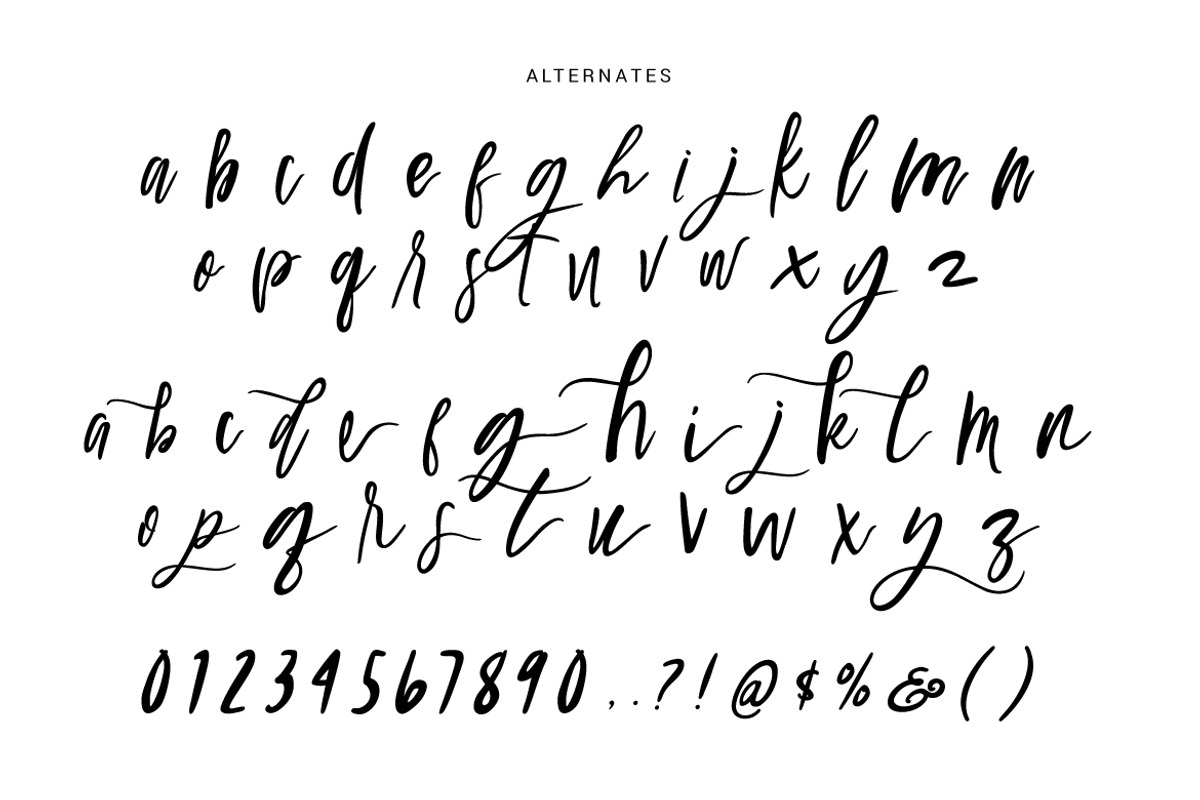 ALTERNATES
a b c d e f g h i j k l m n
o p q r s t u v w x y z
a b c d e f g h i j k l m n
o p q r s t u v w x y z
01234567890 , . ? ! @ $ % & ( )